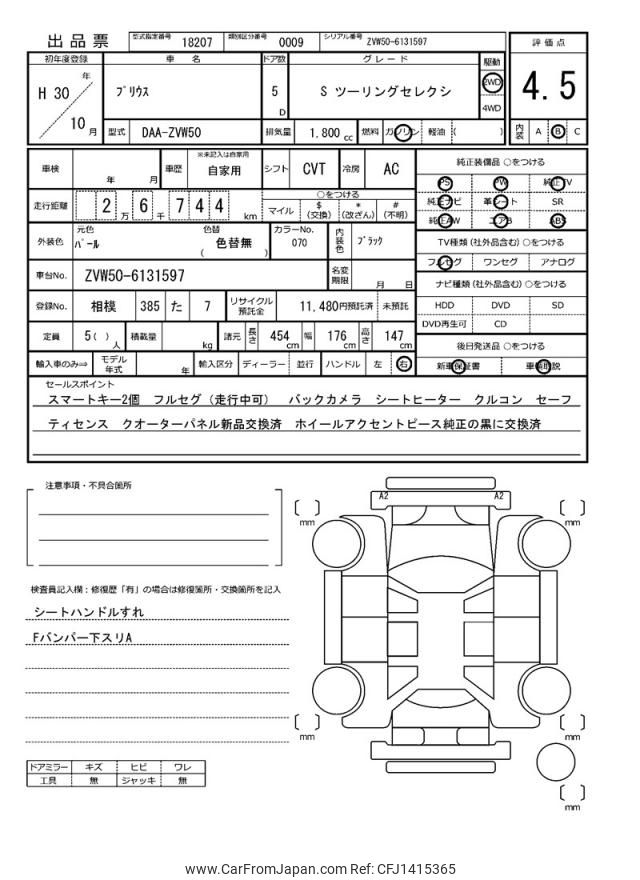 出品票 型式指定番号 18207 類別区分番号 0009 シリアル番号 ZVW50-6131597
評価点
4.5
内装 A B C
初年度登録 車名 ドア数 グレード 駆動
H 30 年 10 月 プリウス 5 D S ツーリングセレクシ 2WD 4WD
型式 DAA-ZVW50 排気量 1.800 cc 燃料 ガソリン 軽油 ( )
車検 年 月 車歴 ※未記入は自家用 自家用 シフト CVT 冷房 AC
走行距離 2 万 6 千 7 4 4 km ○をつける
マイル $ (交換) * (改ざん) # (不明)
外装色 元色 パール 色替 色替無 ( ) カラーNo. 070 内装色 ブラック
車台No. ZVW50-6131597 名変期限 月 日
登録No. 相模 385 た 7 リサイクル預託金 11,480円預託済 未預託
定員 5( ) 人 積載量 kg 諸元 長さ 454 cm 幅 176 cm 高さ 147 cm
輸入車のみ⇒ モデル年式 年 輸入区分 ディーラー 並行 ハンドル 左 右
純正装備品 ○をつける
PS PW 純正TV
純正ナビ 革シート SR
純正AW エアB ABS
TV種類 (社外品含む) ○をつける
フルセグ ワンセグ アナログ
ナビ種類 (社外品含む) ○をつける
HDD DVD SD
DVD再生可 CD
後日発送品 ○をつける
新車保証書 車輌取説
セールスポイント
スマートキー2個 フルセグ（走行中可） バックカメラ シートヒーター クルコン セーフ
ティセンス クオーターパネル新品交換済 ホイールアクセントピース純正の黒に交換済
注意事項・不具合箇所
検査員記入欄：修復歴「有」の場合は修復箇所・交換箇所を記入
シートハンドルすれ
Fバンパー下スリA
ドアミラー キズ ヒビ ワレ
工具 無 ジャッキ 無
A2 A2
mm mm
mm mm
mm
www.CarFromJapan.com Ref: CFJ1415365